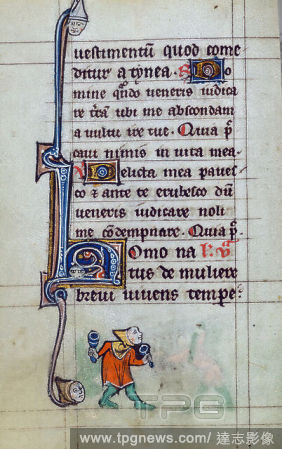 uestimentū quod come
ditur a tynea. Do
mine qñdo ueneris iudica
re t̄rā ubi me abscondam
a uultu ire tue. Quia p̄
caui nimis in uita mea.
Delicta mea paues
co & ante te erubesco dū
ueneris iudicare noli
me cōdempnare. Quia p̄.
Homo na
tus de muliere
breui uiuens tempe
TPG
www.tpgnews.com/ 達志影像